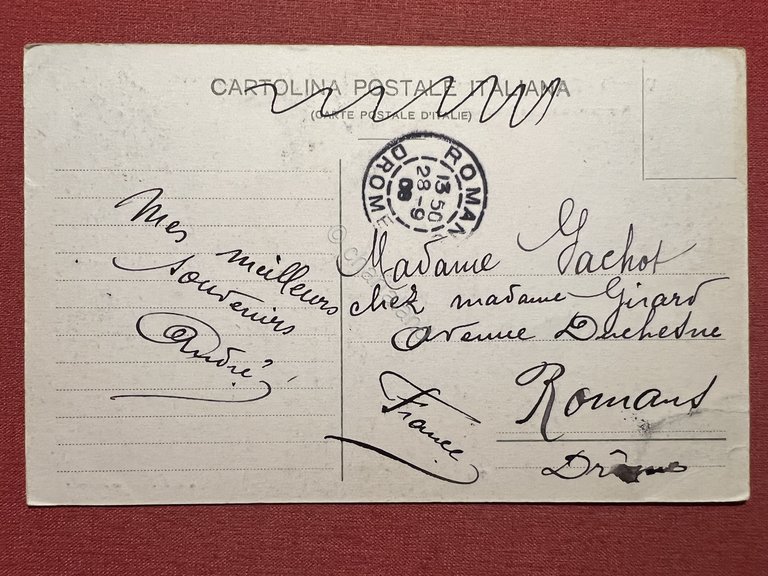 CARTOLINA POSTALE ITALIANA
(CARTE POSTALE D'ITALIE)
ROMANS
DROME
13 50
28-9
08
Mes meilleurs
souvenirs
André
Madame Gachot
chez madame Girard
avenue Duchesne
Romans
Drôme
France